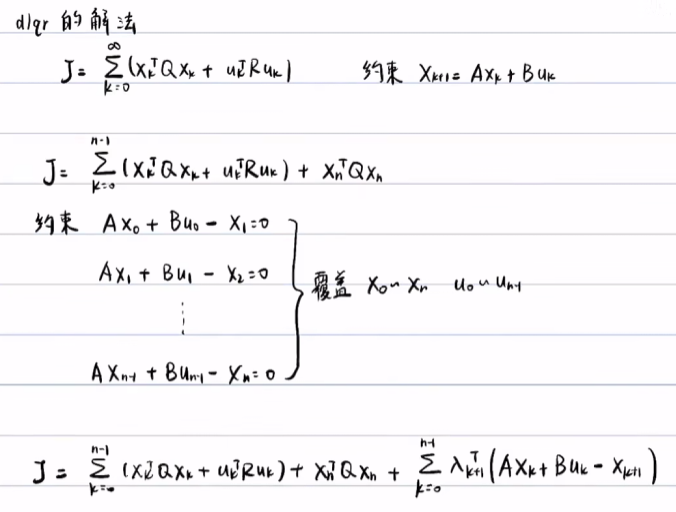 dlqr 的解法
J = ∑_{k=0}^{∞} (x_k^T Q x_k + u_k^T R u_k)  约束 x_{k+1} = A x_k + B u_k
J = ∑_{k=0}^{n-1} (x_k^T Q x_k + u_k^T R u_k) + x_n^T Q x_n
约束 A x_0 + B u_0 - x_1 = 0
A x_1 + B u_1 - x_2 = 0  覆盖 x_0 ~ x_n  u_0 ~ u_{n-1}
⋮
A x_{n-1} + B u_{n-1} - x_n = 0
J = ∑_{k=0}^{n-1} (x_k^T Q x_k + u_k^T R u_k) + x_n^T Q x_n + ∑_{k=0}^{n-1} λ_{k+1}^T (A x_k + B u_k - x_{k+1})